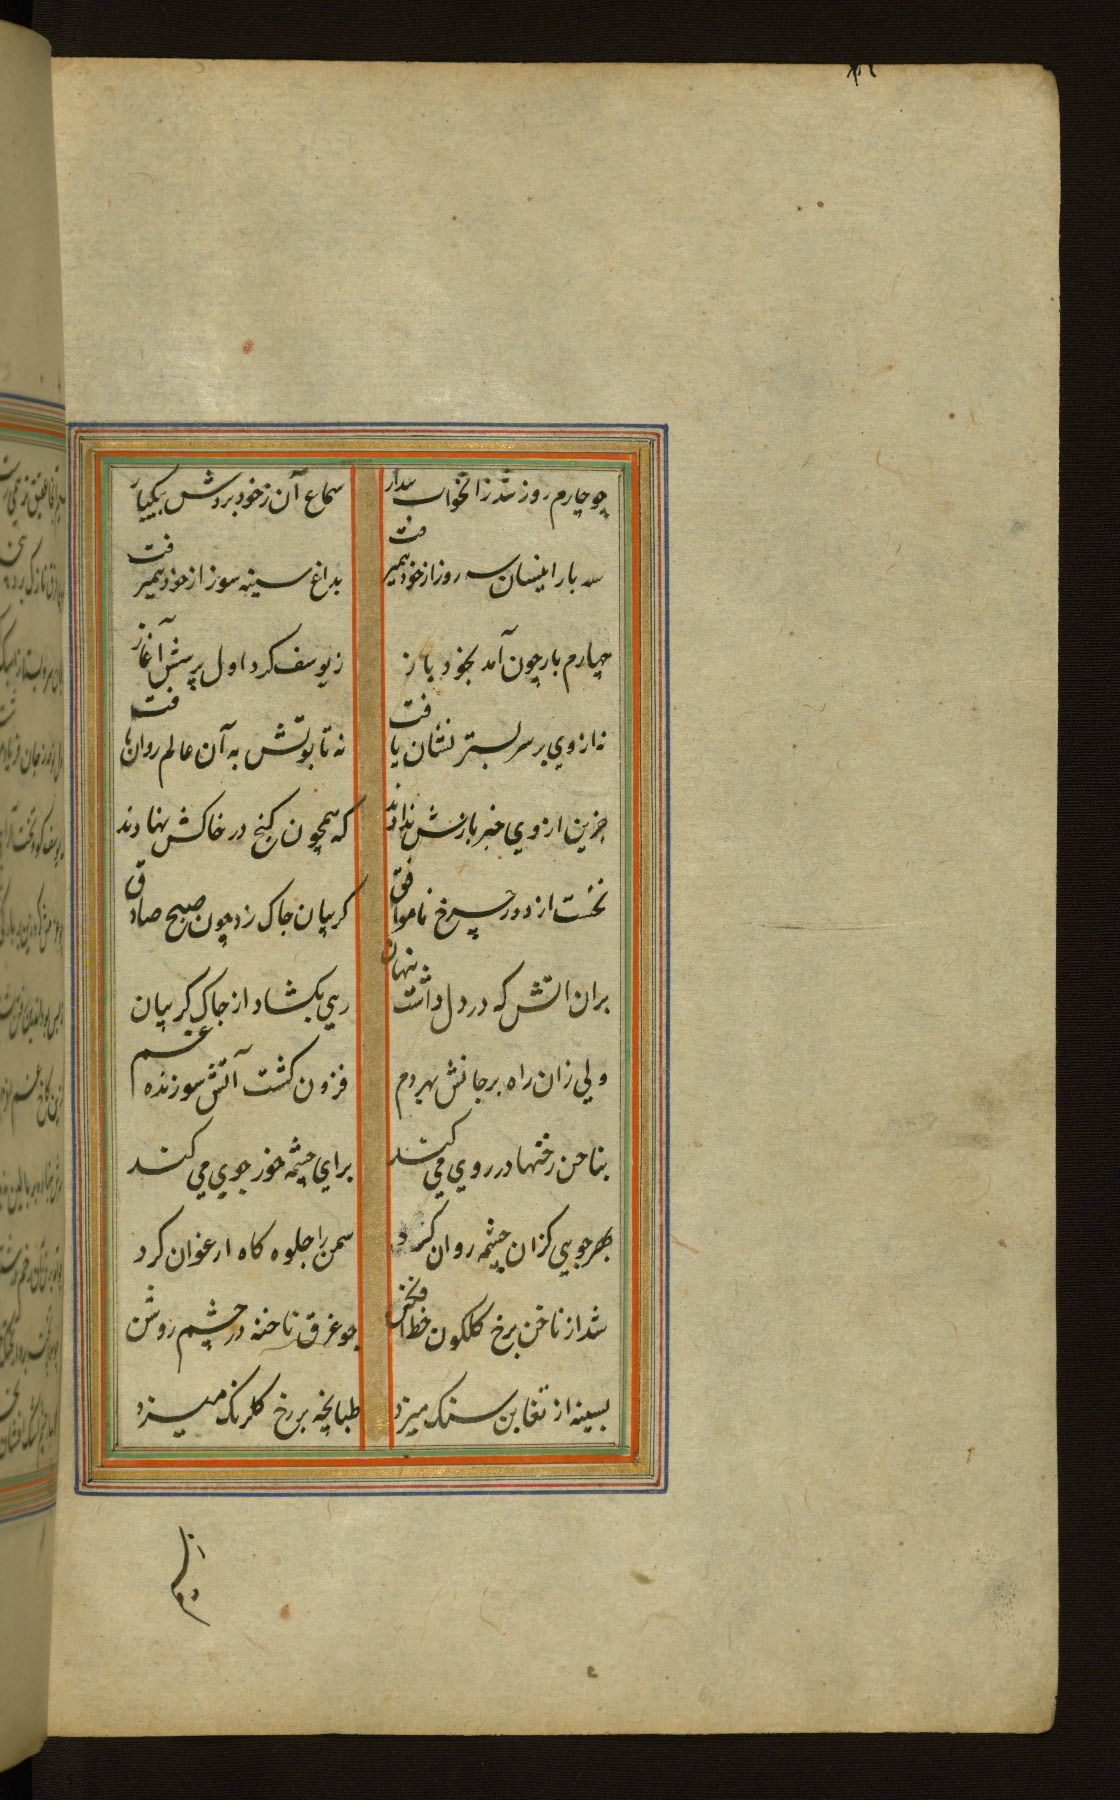 چو چارم روز شد زانخواب بیدار سماع آن ز خود بردش بیکبار
سه بار اینسان سه روز از خود همیرفت بداغ سینه سوز از خود همیرفت
چهارم بار چون آمد بخود باز ز یوسف کرد اول پرسش آغاز
نه از وی بر سر بستر نشان یافت نه تابوتش به آن عالم روان یافت
جزین از وی خبر بازش ندادند که همچون کنج در خاکش نهادند
نخست از دور چرخ ناموافق کریبان چاک زد چون صبح صادق
بران اتش که در دل داشت پنهان رهی بکشاد از چاک کریبان
ولی زان راه بر جانش بهر دم فزون کشت آتش سوزنده غم
بناخن رخنها در روی می کند برای چشمه خور جوی می کند
بهر جویی کزان چشمه روان کرد سمن را جلوه کاه ارغوان کرد
شد از ناخن برخ کلکون خط افکن چو غرق ناخنه در چشم روشن
بسینه از تغابن سنک میزد طبانچه بر رخ کلرنک میزد